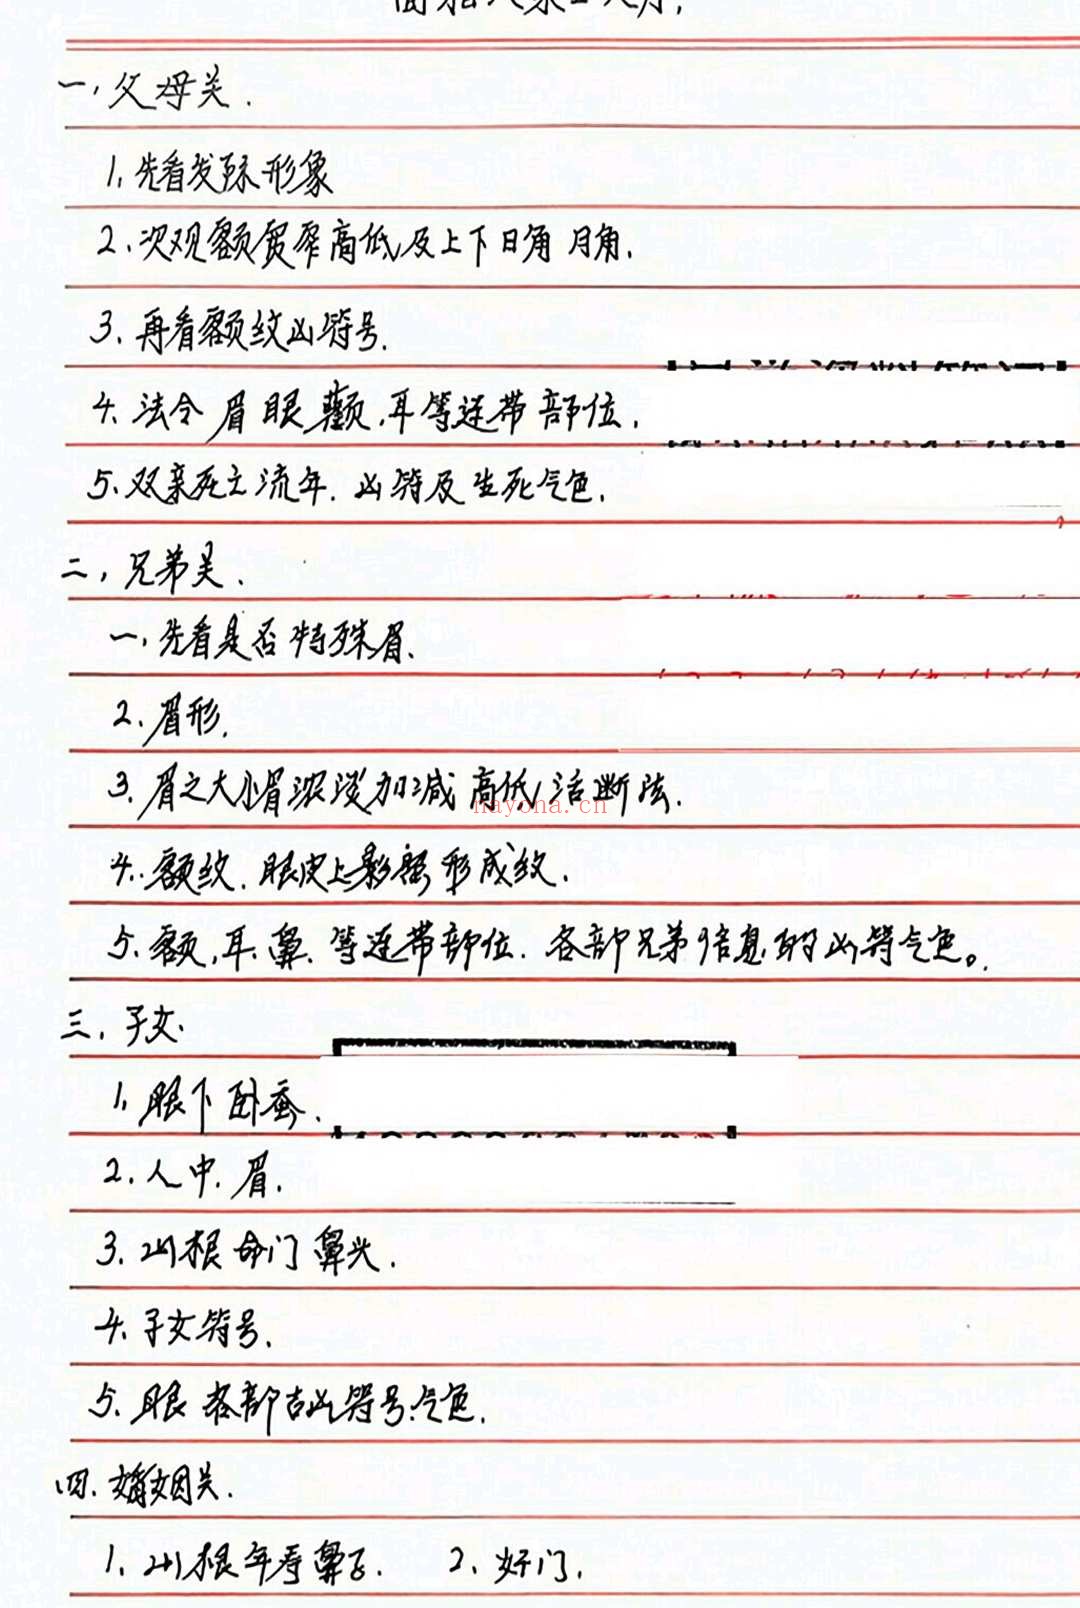 一，父母关.
1，先看发际形象
2、次观额宽窄高低及上下日角月角.
3、再看额纹凶符号.
4、法令眉眼颧.耳等连带部位.
5、双亲死之流年.凶符及生死气色.
二，兄弟关.
一，先看是否特殊眉.
2、眉形.
3、眉之大小眉浓淡加减高低活断法.
nayona.cn
4、额纹.眼皮上影响形成纹.
5、额，耳.鼻.等连带部位.各部兄弟信息的凶符气色。.
三，子女.
1，眼下卧蚕.
2、人中.眉.
3、山根命门鼻头.
4、子女符号.
5、眼各部吉凶符号.气色.
四、婚姻关.
1、山根年寿鼻子. 2、奸门.